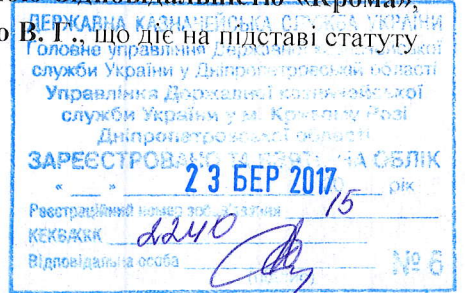 відповідальністю «Крома»,
В. Г., що діє на підставі статуту
ДЕРЖАВНА КАЗНАЧЕЙСЬКА СЛУЖБА УКРАЇНИ
Головне управління Державної казначейської
служби України у Дніпропетровській області
Управління Державної казначейської
служби України у м. Кривому Розі
Дніпропетровської області
ЗАРЕЄСТРОВАНО ТА ВЗЯТО НА ОБЛІК
« » 23 БЕР 2017 рік
Реєстраційний номер зобов'язання 15
КЕКВ/ККК 2240
Відповідальна особа
№ 6